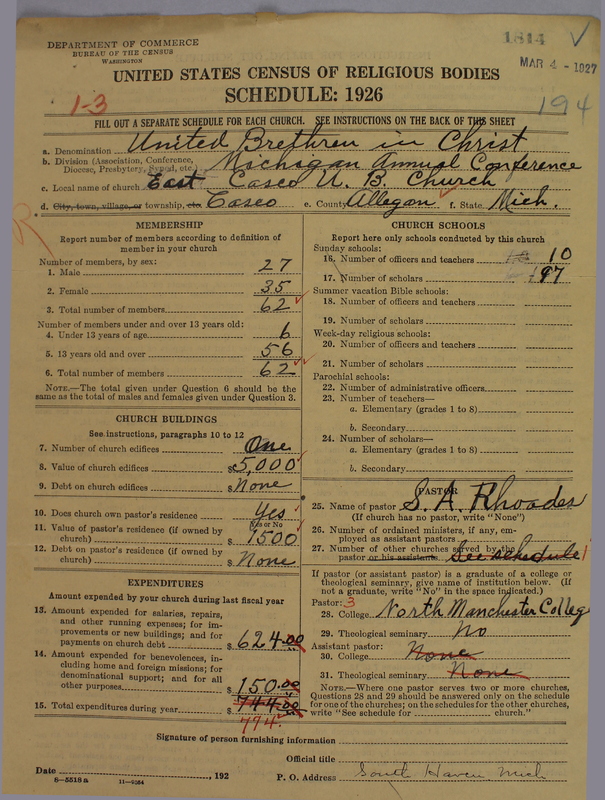 DEPARTMENT OF COMMERCE
BUREAU OF THE CENSUS
WASHINGTON
1814 ✓
MAR 4 - 1927
UNITED STATES CENSUS OF RELIGIOUS BODIES
SCHEDULE: 1926
1-3
194
FILL OUT A SEPARATE SCHEDULE FOR EACH CHURCH. SEE INSTRUCTIONS ON THE BACK OF THE SHEET
a. Denomination United Brethren in Christ
b. Division (Association, Conference, Diocese, Presbytery, Synod, etc.) Michogan Annual Conference
c. Local name of church East Casco U. B. Church
d. City, town, village, or township, etc. Casco e. County Allegan f. State Mich.
R
MEMBERSHIP
Report number of members according to definition of
member in your church
Number of members, by sex:
1. Male 27
2. Female 35
3. Total number of members 62
Number of members under and over 13 years old:
4. Under 13 years of age 6
5. 13 years old and over 56
6. Total number of members 62
NOTE.—The total given under Question 6 should be
same as the total of males and females given under Question 3.
CHURCH BUILDINGS
See instructions, paragraphs 10 to 12
7. Number of church edifices One
8. Value of church edifices $5,000
9. Debt on church edifices $ None
10. Does church own pastor's residence Yes
(Yes or No)
11. Value of pastor's residence (if owned by
church) $ 1500
12. Debt on pastor's residence (if owned by
church) $ None
EXPENDITURES
Amount expended by your church during last fiscal year
13. Amount expended for salaries, repairs,
and other running expenses; for im-
provements or new buildings; and for
payments on church debt $ 624.00
14. Amount expended for benevolences, in-
cluding home and foreign missions; for
denominational support; and for all
other purposes $ 150.00
15. Total expenditures during year $ 744.00
774
CHURCH SCHOOLS
Report here only schools conducted by this church
Sunday schools:
16. Number of officers and teachers 10
17. Number of scholars 97
Summer vacation Bible schools:
18. Number of officers and teachers
19. Number of scholars
Week-day religious schools:
20. Number of officers and teachers
21. Number of scholars
Parochial schools:
22. Number of administrative officers
23. Number of teachers—
a. Elementary (grades 1 to 8)
b. Secondary
24. Number of scholars—
a. Elementary (grades 1 to 8)
b. Secondary
PASTOR
25. Name of pastor S. A. Rhoades
(If church has no pastor, write "None")
26. Number of ordained ministers, if any, em-
ployed as assistant pastors
27. Number of other churches served by the
pastor or his assistants See schedule 1
If pastor (or assistant pastor) is a graduate of a college or
theological seminary, give name of institution below. (If
not a graduate, write "No" in the space indicated.)
Pastor: 3
28. College North Manchester College
29. Theological seminary No
Assistant pastor:
30. College None
31. Theological seminary None
NOTE.—Where one pastor serves two or more churches,
Questions 28 and 29 should be answered only on the schedule
for one of the churches; on the schedules for the other churches,
write "See schedule for church."
Signature of person furnishing information
Official title
Date , 192
P. O. Address South Haven Mich
8-5518 a 11-9264